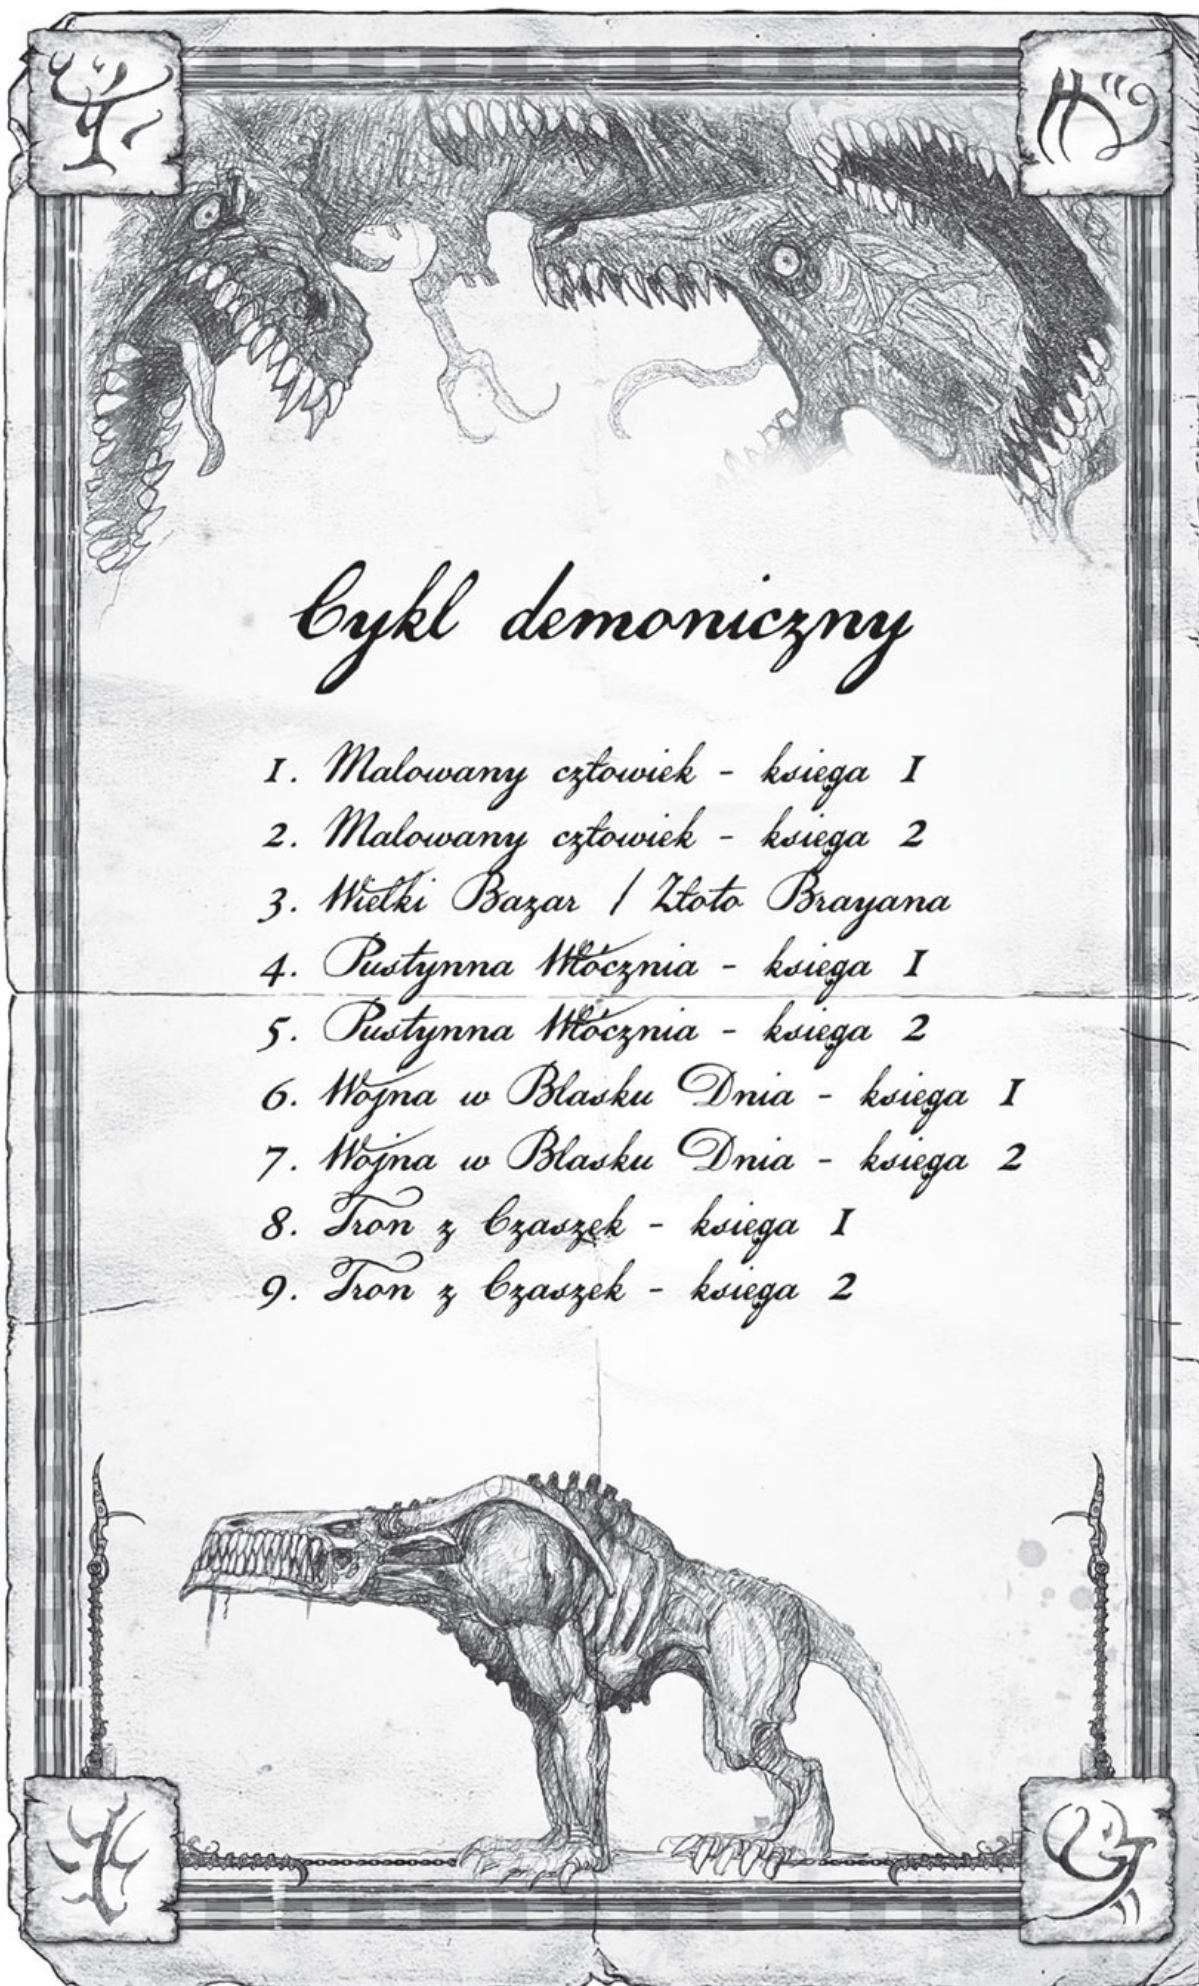 Cykl demoniczny
1. Malowany człowiek - księga 1
2. Malowany człowiek - księga 2
3. Wielki Bazar / Złoto Brayana
4. Pustynna Włócznia - księga 1
5. Pustynna Włócznia - księga 2
6. Wojna w Blasku Dnia - księga 1
7. Wojna w Blasku Dnia - księga 2
8. Tron z Czaszek - księga 1
9. Tron z Czaszek - księga 2